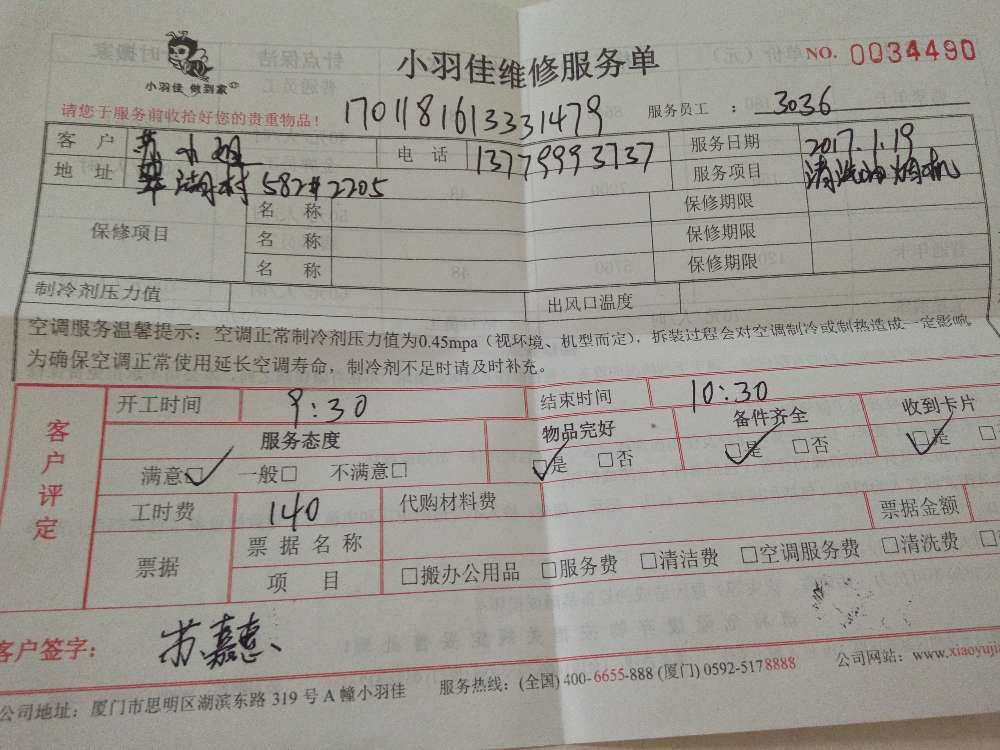 小羽佳 做到家
小羽佳维修服务单
NO. 0034490
请您于服务前收拾好您的贵重物品！
1701181613331479
服务员工 ： 3036
客 户 苏小姐 电 话 13779993737 服务日期 2017.1.19
地 址 湖村 582# 2205 服务项目 清洗油烟机
保修项目 名 称 保修期限
名 称 保修期限
名 称 保修期限
制冷剂压力值 出风口温度
空调服务温馨提示：空调正常制冷剂压力值为0.45mpa（视环境、机型而定），拆装过程会对空调制冷或制热造成一定影响
为确保空调正常使用延长空调寿命，制冷剂不足时请及时补充。
客户评定
开工时间 9:30 结束时间 10:30
服务态度 物品完好 备件齐全 收到卡片
满意□ 一般□ 不满意□ □是 □否 □是 □否 □是 □
工时费 140 代购材料费
票据 票据名称 票据金额
项 目 □搬办公用品 □服务费 □清洁费 □空调服务费 □清洗费 □
客户签字： 苏嘉惠
公司地址：厦门市思明区湖滨东路 319 号 A 幢小羽佳 服务热线：(全国) 400-6655-888 (厦门) 0592-5178888 公司网站：www.xiaoyujia